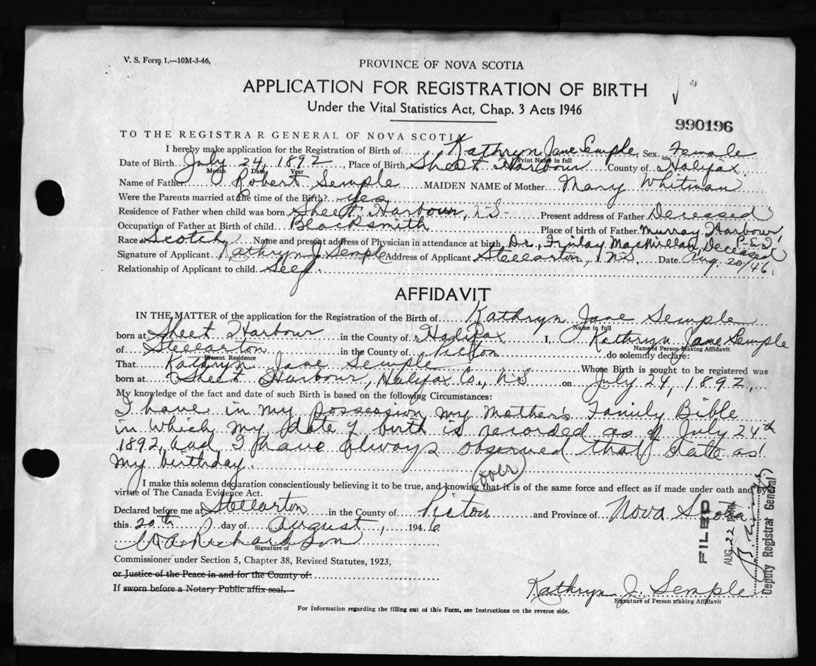 V. S. Form 1.—10M-3-46.
PROVINCE OF NOVA SCOTIA
APPLICATION FOR REGISTRATION OF BIRTH
Under the Vital Statistics Act, Chap. 3 Acts 1946
990196
TO THE REGISTRAR GENERAL OF NOVA SCOTIA
I hereby make application for the Registration of Birth of Kathryn Jane Semple, Sex Female
Print Name in full
Date of Birth July 24, 1892, Place of Birth Sheet Harbour County of Halifax
Month Date Year
Name of Father Robert Semple MAIDEN NAME of Mother Mary Whitman
Were the Parents married at the time of the Birth? Yes
Residence of Father when child was born Sheet Harbour, N.S. Present address of Father Deceased
Occupation of Father at Birth of child Blacksmith Place of birth of Father Murray Harbour, P.E.I.
Race Scotch Name and present address of Physician in attendance at birth Dr. Finlay MacMillan, Deceased
Signature of Applicant Kathryn J. Semple Address of Applicant Stellarton, N.S. Date Aug. 20/46.
Relationship of Applicant to child Self.
AFFIDAVIT
IN THE MATTER of the application for the Registration of the Birth of Kathryn Jane Semple
Name in full
born at Sheet Harbour in the County of Halifax I, Kathryn Jane Semple
Name of Person Making Affidavit
of Stellarton in the County of Pictou do solemnly declare:
Present Residence
That Kathryn Jane Semple Whose Birth is sought to be registered was
born at Sheet Harbour, Halifax Co., N.S on July 24, 1892.
My knowledge of the fact and date of such Birth is based on the following Circumstances:
I have in my possession my Mother's Family Bible
in which my date of birth is recorded as of July 24th
1892, and I have always observed that date as
my birthday.
(over)
I make this solemn declaration conscientiously believing it to be true, and knowing that it is of the same force and effect as if made under oath and by
virtue of The Canada Evidence Act.
Declared before me at Stellarton in the County of Pictou and Province of Nova Scotia
this 20th day of August, 1946
Richardson
Signature of
Commissioner under Section 5, Chapter 38, Revised Statutes, 1923,
or Justice of the Peace in and for the County of
If sworn before a Notary Public affix seal.
Kathryn J. Semple
Signature of Person Making Affidavit
For Information regarding the filling out of this Form, see Instructions on the reverse side.
FILED
AUG 22
Deputy Registrar General